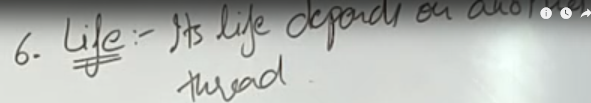 6. Life :- Its life depends on another
thread.